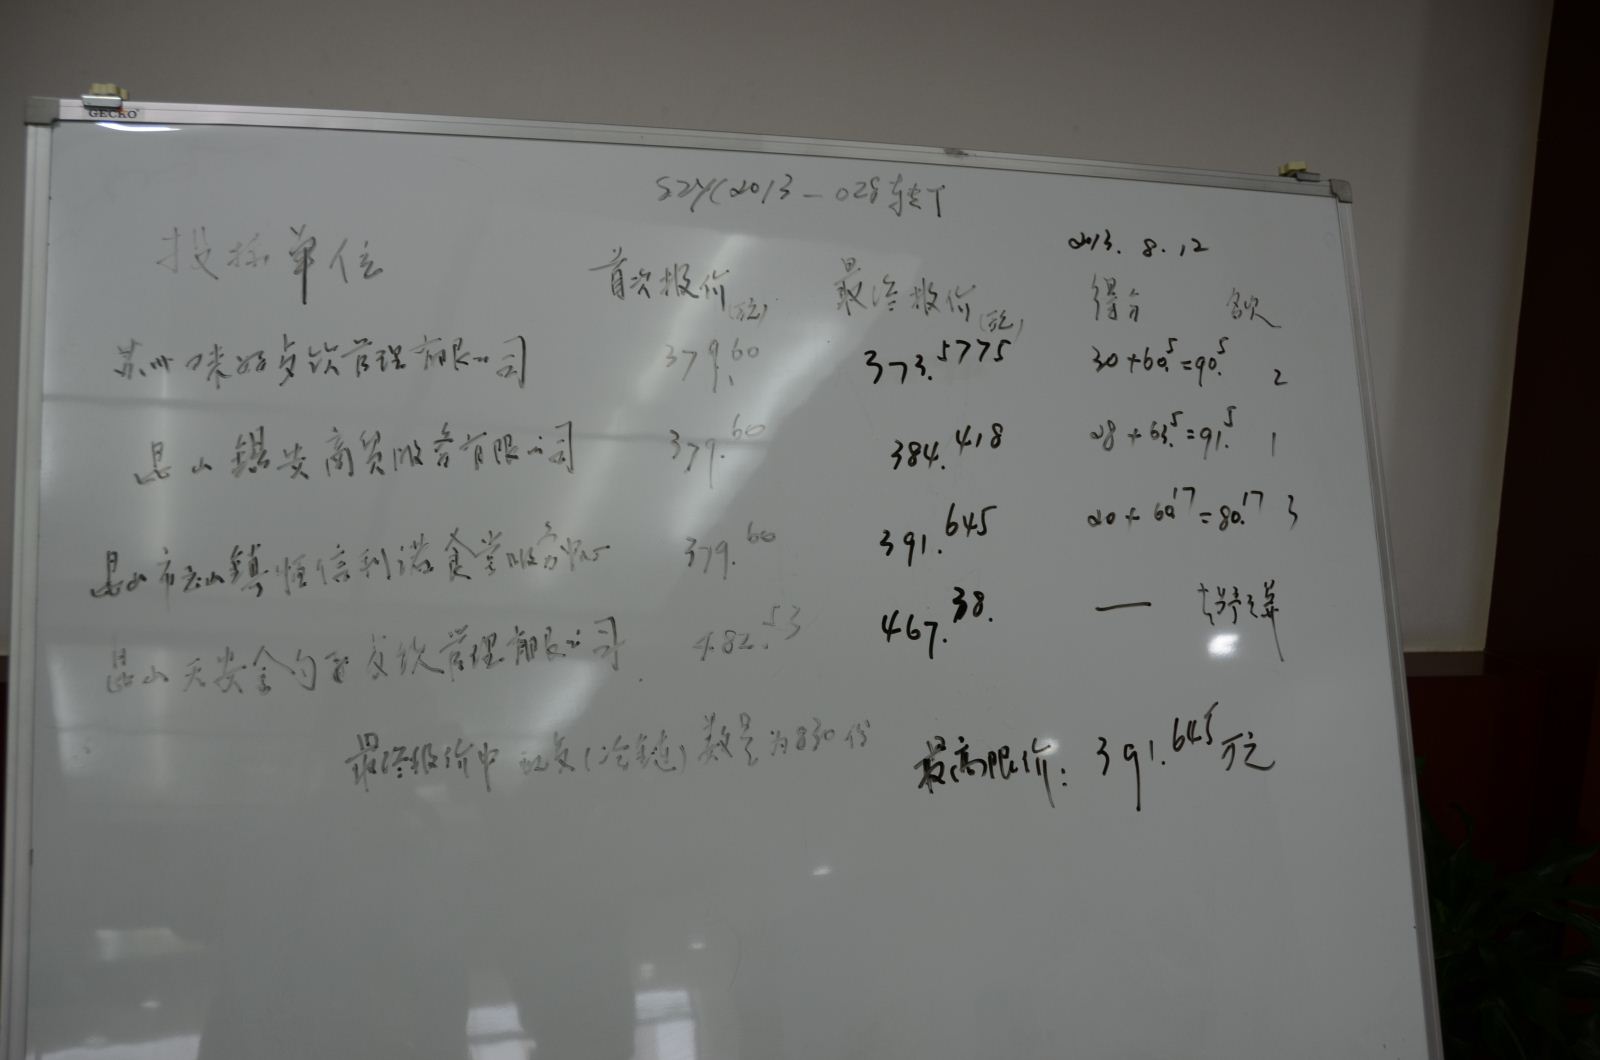 GECKO
SZYC2013-028转T
2013.8.12
投标单位 首次报价(万元) 最终报价(万元) 得分 名次
苏州味好多饮管理有限公司 379.60 373.5775 30+60.5=90.5 2
昆山锡安商贸服务有限公司 379.60 384.418 28+63.5=91.5 1
昆山市玉山镇恒信利诺食堂服务 379.60 391.645 20+60.17=80.17 3
昆山天安 饮管理有限公司 482.53 467.38. —
最终报价中 (冷链)数量为830份 最高限价:391.645万元